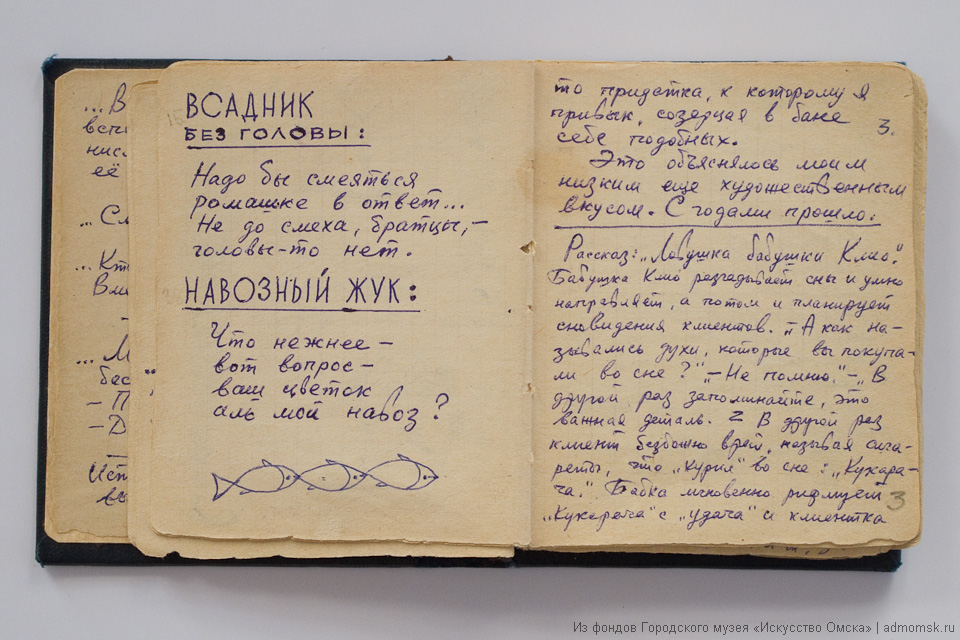 ... В
встр
нис
её
... См
... Кт
Вли
–
... М
бас
– П
– Д
Ист
вы
ВСАДНИК
БЕЗ ГОЛОВЫ:
Надо бы смеяться
ромашке в ответ...
Не до смеха, братцы, –
головы-то нет.
НАВОЗНЫЙ ЖУК:
Что нежнее –
вот вопрос –
ваш цветок
аль мой навоз?
то придатка, к которому я
привык, созерцая в бане
себе подобных.
3.
Это объяснялось моим
низким еще художественным
вкусом. С годами прошло.
Рассказ: „Ловушка бабушки Клио."
Бабушка Клио разгадывает сны и умно
направляет, а потом и планирует
сновидения клиентов. „– А как на-
зывались духи, которые вы покупа-
ли во сне?" „– Не помню." – „В
другой раз запоминайте, это
важная деталь. В другой раз
клиент безбожно врет, называя сига-
реты, что „курил" во сне: „Кукара-
ча." Бабка мгновенно рифмует
3
„Кукарача" с „удача" и клиентка
Из фондов Городского музея «Искусство Омска» | admomsk.ru